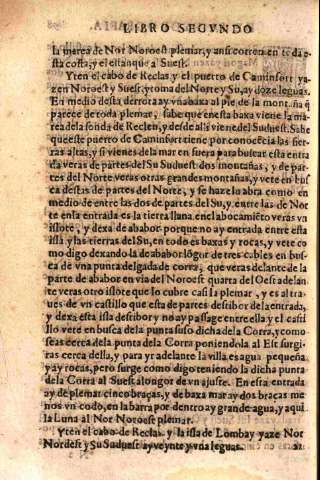 LIBRO SEGVNDO
la marea de Nor Noroest plemar, y ansi corren en toda e-
sta costa, y el estanque a Suest.
Yten el cabo de Reclas y el puerto de Caminfort ya-
zen Noroest y Suest, y toma del Norte y Su, ay doze leguas.
En medio desta derrota ay vna baxa al pie de la montaña q̃
parece de toda plemar, sabe que en esta baxa viene la ma-
rea de la sonda de Reclen, y desde alli viene del Suduest. Sabe
que este puerto de Caminfort tiene por conocēcia las sier-
ras altas, y si vienes de la mar en fuera para buscar esta entra
da veras de partes del Su Suduest dos montañas, y de par-
tes del Norte veras otras grandes montañas, y vete en bus
ca destas de partes del Norte, y se haze lo abra como en
medio de entre las dos de partes del Su, y entre las de Nor
te en la entrada es la tierra llana, en el abocamiēto veras vn
islote, y dexa de ababor porque no ay entrada entre esta
isla, y las tierras del Su, en todo es baxas y rocas, y vete co
mo digo dexando la de ababor lōgor de tres cables en bus
ca de vna punta delgada de corra, que veras delante de la
parte de ababor en via del Noroest quarta del Oest adelan
te veras otro islote que lo cubre casi la plemar, y es al tra-
ues de vn castillo que esta de partes destibor de la entrada,
y dexa esta isla destibor y no ay passage entre ella y el casti
llo vete en busca de la punta suso dicha de la Corra, y como
seas cerca de la punta de la Corra poniendola al Est surgi-
ras cerca della, y para yr adelante la villa es agua pequeña
y ay rocas, pero surge como digo teniendo la dicha punta
dela Corra al Suest alongor de vn ajuste. En esta entrada
ay de plemar cinco braças, y de baxa mar ay dos braças me
nos vn codo, en la barra por dentro ay grande agua, y aqui
la Luna al Nor Noroest plemar.
Yten el cabo de Reclas y la isla de Lombay yaze Nor
Nordest y Su Suduest ay veynte y vna leguas.